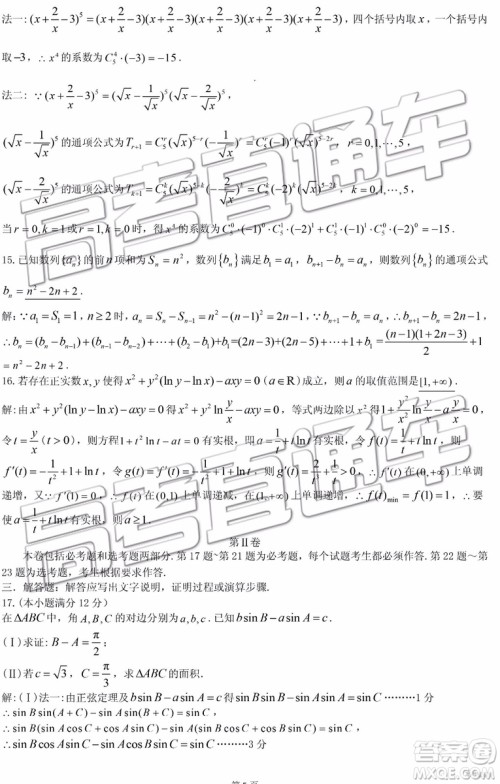 法一:(x+2/x-3)^5=(x+2/x-3)(x+2/x-3)(x+2/x-3)(x+2/x-3)(x+2/x-3), 四个括号内取 x, 一个括号内
取 -3, ∴ x^4 的系数为 C_5^4·(-3)=-15.
法二: ∵(x+2/x-3)^5=(√x-1/√x)^5(√x-2/√x)^5,
(√x-1/√x)^5 的通项公式 T_{r+1}=C_5^r(√x)^{5-r}(-1/√x)^r=C_5^r(-1)^r(√x)^{5-2r} r=0,1,⋯,5,
(√x-2/√x)^5 的通项公式 T_{k+1}=C_5^k(√x)^{5-k}(-2/√x)^k=C_5^k(-2)^k(√x)^{5-2k}, k=0,1,⋯,5,
当 r=0,k=1 或 r=1,k=0 时, 得 x^4 的系数为 C_5^0·(-1)^0·C_5^1·(-2)^1+C_5^1·(-1)^1·C_5^0·(-2)^0=-15.
15.已知数列{a_n}的前 n 项和为 S_n=n^2, 数列{b_n}满足 b_1=a_1, b_{n+1}-b_n=a_n, 则数列{b_n}的通项公式
b_n=n^2-2n+2.
解: ∵a_1=S_1=1, n≥2 时, a_n=S_n-S_{n-1}=n^2-(n-1)^2=2n-1, b_{n+1}-b_n=a_n, ∴b_{n+1}-b_n=2n-1,
∴b_n=(b_n-b_{n-1})+(b_{n-1}-b_{n-2})+⋯+(b_2-b_1)+b_1=(2n-3)+(2n-5)+⋯+1+1=(n-1)(1+2n-3)/2+1
=n^2-2n+2.
16.若存在正实数 x,y 使得 x^2+y^2(ln y-ln x)-axy=0(a∈R)成立, 则 a 的取值范围是 [1,+∞).
解:由 x^2+y^2(ln y-ln x)-axy=0 得 x^2+y^2 ln y/x-axy=0, 等式两边除以 x^2 得 1+y^2/x^2 ln y/x-a y/x=0,
令 t=y/x(t>0), 则方程 1+t^2 ln t-at=0 有实根, 则 a=1/t+t ln t 有实根, 令 f(t)=1/t+t ln t, 则
f'(t)=-1/t^2+1+ln t, 令 g(t)=f'(t)=-1/t^2+1+ln t, 则 g'(t)=2/t^3+1/t>0, ∴f'(t) 在(0,+∞)上单调
递增, 又 f'(1)=0, ∴f(t)在(0,1)上单调递减, 在(1,+∞)上单调递增, ∴f(t)_min=f(1)=1, ∴f(t)∈[1,+∞), 要
使 a=1/t+t ln t 有实根, 则 a≥1.
第Ⅱ卷
本卷包括必考题和选考题两部分. 第 17 题~第 21 题为必考题, 每个试题考生都必须作答. 第 22 题~第
23 题为选考题, 考生根据要求作答.
三. 解答题: 解答应写出文字说明, 证明过程或演算步骤.
17.(本小题满分 12 分)
在ΔABC中, 角 A,B,C 的对边分别为 a,b,c. 已知 b sin B-a sin A=c.
(Ⅰ)求证: B-A=π/2;
(Ⅱ)若 c=√3, C=π/3, 求ΔABC的面积.
解: (Ⅰ)法一:由正弦定理及 b sin B-a sin A=c 得 sin B·b-a sin A=sin C, ………1 分
∴sin B sin(A+C)-sin A sin(B+C)=sin C,
∴sin B(sin A cos C+cos A sin C)-sin A(sin B cos C+cos B sin C)=sin C,
∴sin B cos A sin C-sin A cos B sin C=sin C ………3 分
高考直通车